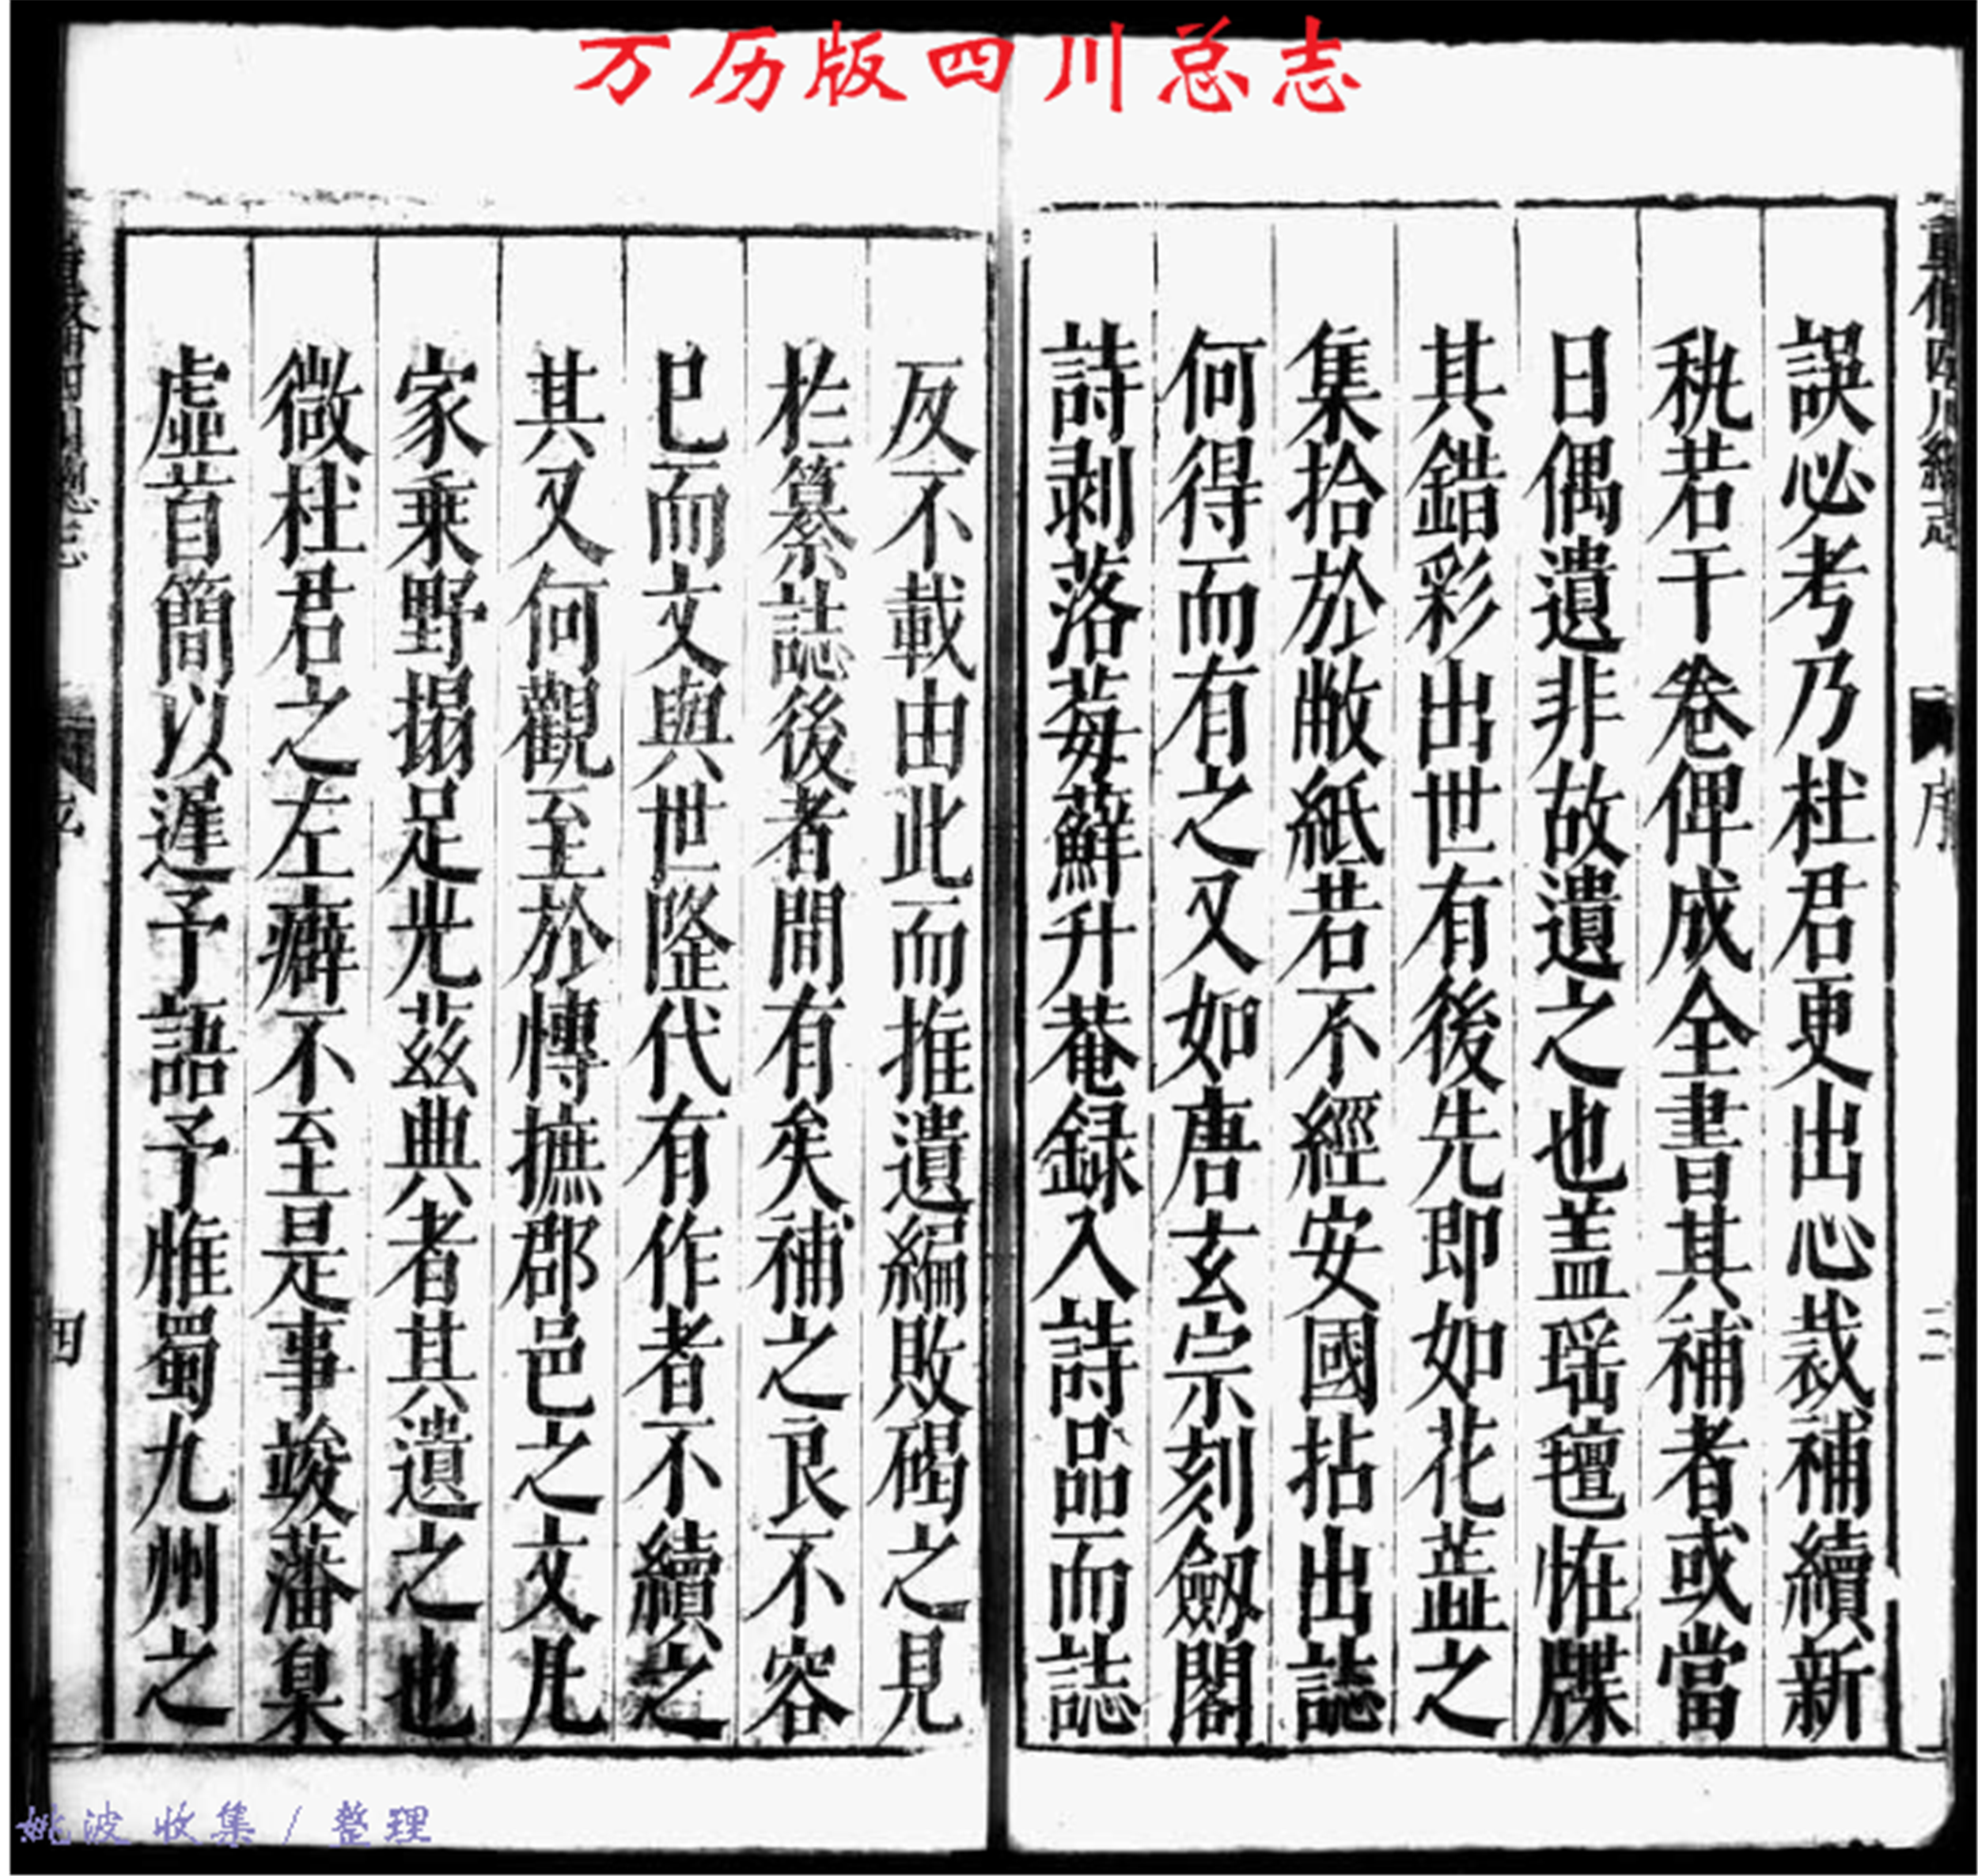 万历版四川总志
誤必考乃杜君更出心裁補續新
秇若干卷俾成全書其補者或當
日偶遺非故遺之也盖瑶氊恠牒
其錯彩出世有後先即如花蕋之
集拾於敝紙若不經安國拈出誌
何得而有之又如唐玄宗刻劔閣
詩剥落莓蘚升菴録入詩品而誌
反不載由此而推遺編敗碣之見
扵纂誌後者間有矣補之良不容
已而文與世隆代有作者不續之
其又何觀至於慱摭郡邑之文凡
家乘野搨足光茲典者其遺之也
微杜君之左癖不至是事竣藩臬
虛首簡以遲予語予惟蜀九州之
序
四
姚波 收集 / 整理